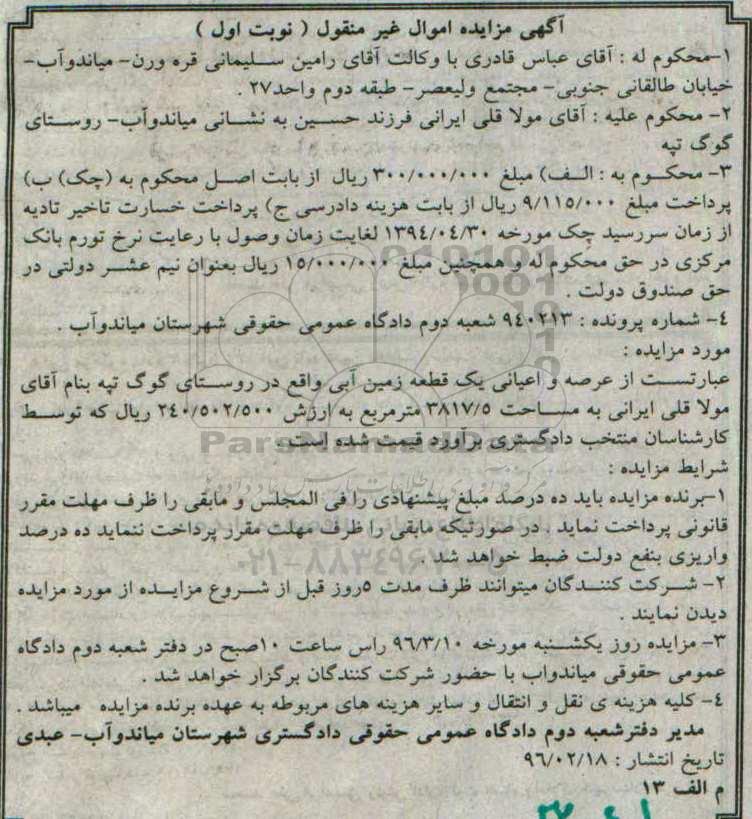 آگهی مزایده اموال غیر منقول ( نوبت اول )
۱-محکوم له : آقای عباس قادری با وکالت آقای رامین سلیمانی قره ورن- میاندوآب-
خیابان طالقانی جنوبی- مجتمع ولیعصر- طبقه دوم واحد۲۷ .
۲- محکوم علیه : آقای مولا قلی ایرانی فرزند حسین به نشانی میاندوآب- روستای
گوگ تپه
۳- محکوم به : الف) مبلغ ۳۰۰/۰۰۰/۰۰۰ ریال از بابت اصل محکوم به (چک) ب)
پرداخت مبلغ ۹/۱۱۵/۰۰۰ ریال از بابت هزینه دادرسی ج) پرداخت خسارت تاخیر تادیه
از زمان سررسید چک مورخه ۱۳۹٤/۰٤/۳۰ لغایت زمان وصول با رعایت نرخ تورم بانک
مرکزی در حق محکوم له و همچنین مبلغ ۱۵/۰۰۰/۰۰۰ ریال بعنوان نیم عشر دولتی در
حق صندوق دولت .
٤- شماره پرونده : ۹٤۰۲۱۳ شعبه دوم دادگاه عمومی حقوقی شهرستان میاندوآب .
مورد مزایده :
عبارتست از عرصه و اعیانی یک قطعه زمین آبی واقع در روستای گوگ تپه بنام آقای
مولا قلی ایرانی به مساحت ۳۸۱۷/۵ مترمربع به ارزش ۲٤۰/۵۰۲/۵۰۰ ریال که توسط
کارشناسان منتخب دادگستری برآورد قیمت شده است.
ParsNamadData
شرایط مزایده :
۱-برنده مزایده باید ده درصد مبلغ پیشنهادی را فی المجلس و مابقی را ظرف مهلت مقرر
قانونی پرداخت نماید . در صورتیکه مابقی را ظرف مهلت مقرر پرداخت ننماید ده درصد
واریزی بنفع دولت ضبط خواهد شد .
۲- شرکت کنندگان میتوانند ظرف مدت ۵روز قبل از شروع مزایده از مورد مزایده
دیدن نمایند .
۳- مزایده روز یکشنبه مورخه ۹۶/۳/۱۰ راس ساعت ۱۰صبح در دفتر شعبه دوم دادگاه
عمومی حقوقی میاندواب با حضور شرکت کنندگان برگزار خواهد شد .
٤- کلیه هزینه ی نقل و انتقال و سایر هزینه های مربوطه به عهده برنده مزایده میباشد .
مدیر دفترشعبه دوم دادگاه عمومی حقوقی دادگستری شهرستان میاندوآب- عبدی
تاریخ انتشار : ۹۶/۰۲/۱۸
م الف ۱۳